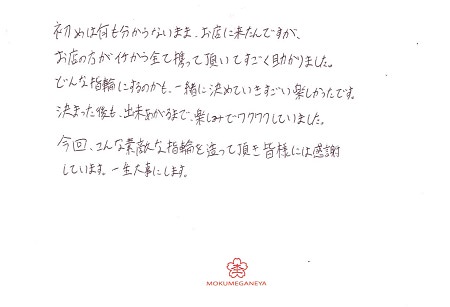 初めは何も分からないまま、お店に来たんですが、
お店の方が1から全て携って頂いてすごく助かりました。
どんな指輪にするのかも、一緒に決めていきすごい楽しかったです。
決まった後も、出来あがるまで、楽しみでワクワクしていました。
今回、こんな素敵な指輪を造って頂き皆様には感謝
しています。一生大事にします。
MOKUMEGANEYA